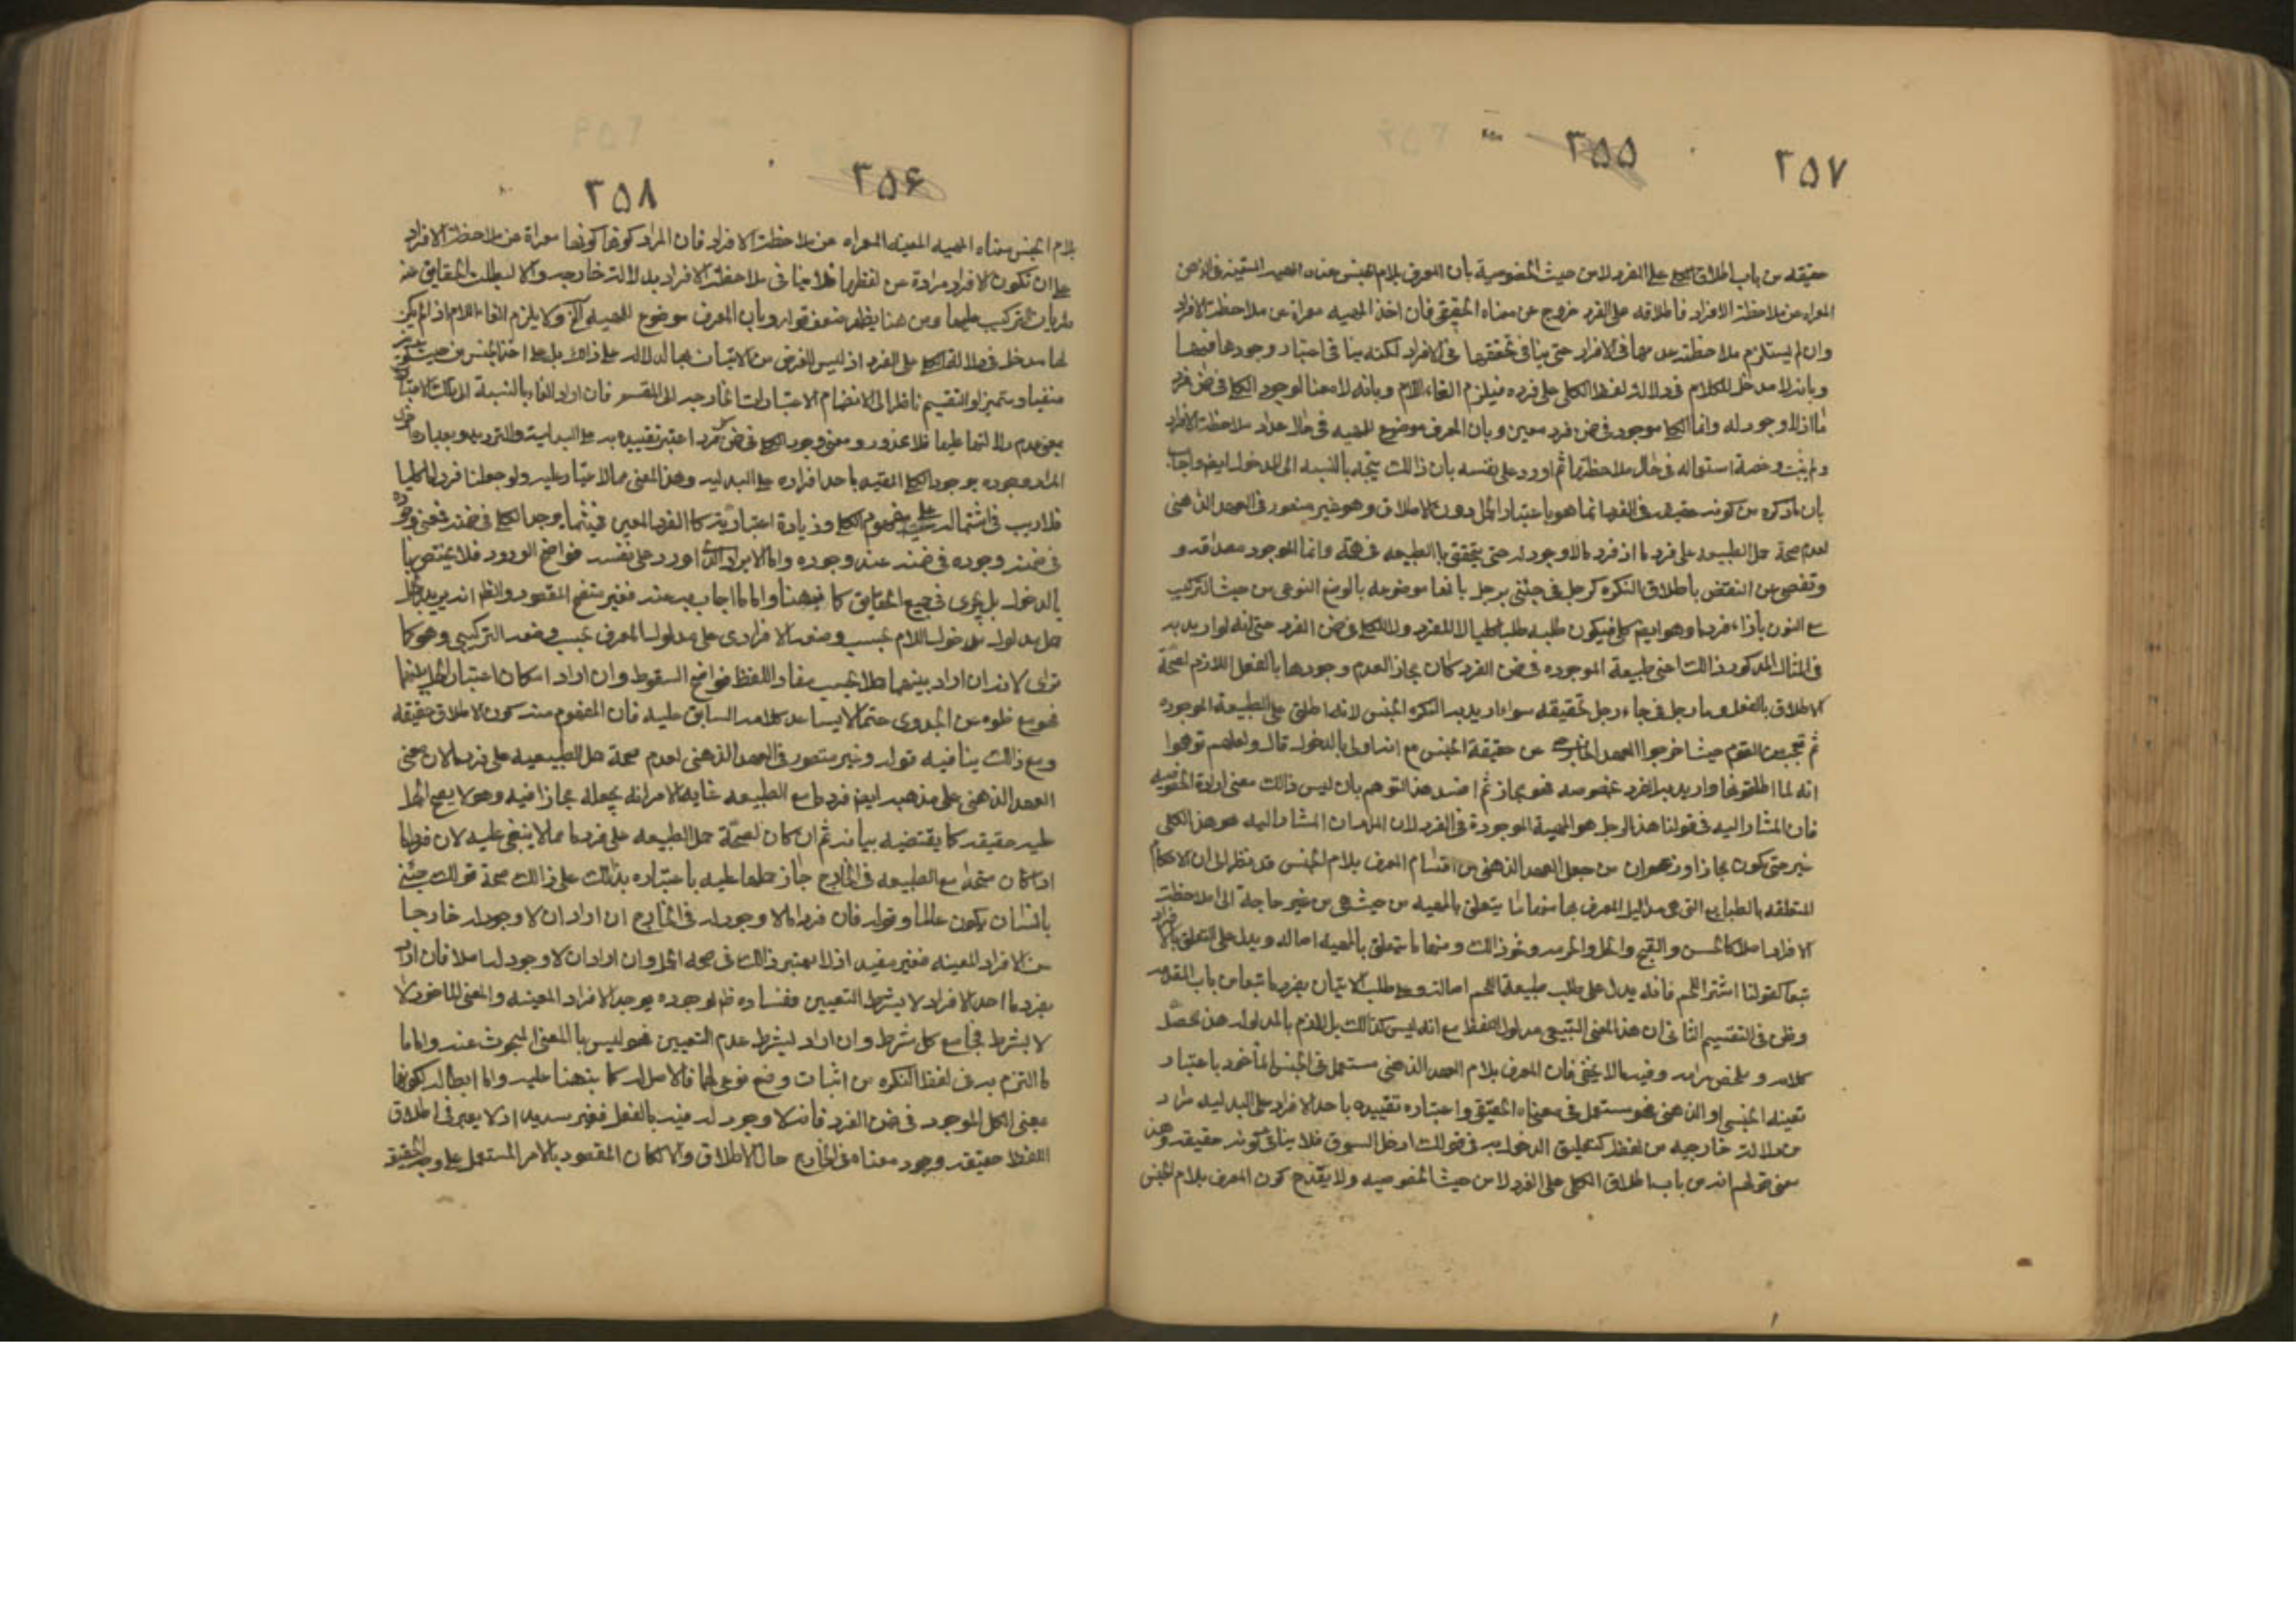 ۳۵۷ ۳۵۵
حقيقه من باب اطلاق الكلي على الفرد لا من حيث الخصوصية بأن المعرف بلام الجنس معناه المهيه المتعينه في الذهن
المعراه عن ملاحظة الافراد فاطلاقه على الفرد خروج عن معناه الحقيقي فان اخذ المهيه معراة عن ملاحظة الافراد
وان لم يستلزم ملاحظة عدمها في الافراد حتى ينافي تحققها في الافراد لكنه ينافي اعتبار وجودها فيها
وبانه لا مدخل للكلام في دلالة لفظ الكلي على فرده فيلزم الغاء اللام وبانه لا معنا لوجود الكلي في ضمن فرد
ما اذ لا وجود له وانما الكلي موجود في ضمن فرد معين وبان المعرف موضوع للمهيه في حال عدم ملاحظة الافراد
ولم يثبت رخصة استعماله في حال ملاحظتها ثم اورد على نفسه بان ذالك يتجه بالنسبه الى المدخول ايضا واجاب
بان ما ذكره من كونه حقيقه في الفرد انما هو باعتبار الحمل دون الاطلاق وهو غير متصور في العهد الذهني
لعدم صحة حمل الطبيعه على فرد ما اذ فرد ما لا وجود له حتى يتحقق با الطبيعه في ضمنه وانما الموجود مصداقه و
وتفصى عن النقض بأطلاق النكره كرجل في جئني برجل بانها موضوعه بالوضع النوعي من حيث التركيب
مع التنوين بأزاء فرد ما وهو ايضا كلي فيكون طلبه طلبا للكلي لا للفرد ولا للكلي في ضمن الفرد حتى انه لو اريد به
في المثال المذكور ذالك اعني طبيعة الموجوده في ضمن الفرد كان مجازا لعدم وجودها بالفعل اللازم لصحة
الاطلاق بالفعل واما رجل في جاء رجل فحقيقه سواء اريد به النكره او الجنس لانه اطلق على الطبيعة الموجوده
ثم تعجب من القوم حيث اخرجوا العهد الخارجي عن حقيقة الجنس مع انه اولى بالدخول قال ولعلهم توهموا
انه لما اطلق هنا واريد به الفرد بخصوصه فهو مجاز ثم افسد هذا التوهم بان ليس ذالك معنى ارادة الخصوصيه
فان المشار اليه في قولنا هذا الرجل هو المهية الموجودة في الفرد لان المراد ان المشار اليه هو هذا الكلي
غير حتى يكون مجازا وزعموا ان من جعل العهد الذهني من اقسام المعرف بلام الجنس قد نظر الى ان الاحكام
المتعلقه بالطبايع التي هي مداليل المعرف بها منها ما يتعلق بالمهيه من حيث هي من غير حاجة الى ملاحظة
الافراد اصلا كالحسن والقبح والحل والحرمه ونحو ذالك ومنها ما يتعلق بالمهيه اصاله ويدل على التعلق بالافراد
تبعا كقولنا اشتر اللحم فانه يدل على طلب طبيعة اللحم اصالة وعلى طلب الاتيان بفرد ما تبعا من باب المقدمه
وظن في التقسيم الثاني ان هذا المعنى التبعي مدلول اللفظ مع انه ليس كذالك بل لازم بالمدلول هذا محصل
كلامه وملخص مرامه وفيه ما لا يخفى فان المعرف بلام العهد الذهني مستعمل في الجنس المأخوذ باعتبار
تعينه الجنسي او الذهني فهو مستعمل في معناه الحقيقي واعتباره تقييده باحد الافراد على البدليه مراد
من دلالة خارجيه من لفظ كتعليق الدخول به في قولك ادخل السوق فلا ينافي كونه حقيقه وهذا
معنى قولهم انه من باب اطلاق الكلي على الفرد لا من حيث الخصوصيه ولا يقدح كون المعرف بلام الجنس
۳۵۸ ۳۵۶
بلام الجنس معناه المهيه المعينه المعراه عن ملاحظة الافراد فان المراد كونها كونها معراة عن ملاحظة الافراد
على ان تكون الافراد مرادة من لفظها فلا ينافي ملاحظة الافراد بدلالة خارجيه والا لبطلت الحقايق عند
طريان التركيب عليها ومن هنا يظهر ضعف قوله وبان المعرف موضوع للمهيه الخ ولا يلزم الغاء اللام اذا لم يكن
لها مدخل في دلالة الكلي على الفرد اذ ليس الغرض من الاتيان بها الدلاله على ذالك بل على اخذ الجنس من حيث كونه
منفيا ومتميزا والتقسيم ناظر الى الانضمام الاعتبارات الخارجيه الى المقسم فان اراد الغاء بالنسبة الى ذلك الاعتبار
بمعنى عدم دلالتها عليها فلا محذور ومعنى وجود الكلي في ضمن فرد اعتبر تقييده به على البدليه والترديد وبعبارة اخرى
المراد وجوده بوجود الكلي المقيد باحد افراده على البدليه وهذا المعنى مما لا غبار عليه ولو جعلنا فرد ما كليا
فلا ريب في اشتماله على مفهوم الكلي وزيادة اعتبارية كما الفرد المعين فيثما وجد الكلي في ضمنه فمعنى وجوده
في ضمنه وجوده في ضمنه عند وجوده واما الايراد الذي اورد على نفسه فواضح الورود فلا يختص با
بالدخول بل يجري في جميع الحقايق كما نبهنا واما ما اجاب به عنه فغير متضح المقصود والظ انه يريد بالحمل
حمل مدلول مدخول اللام بحسب وضعه الافرادي على مدلول المعرف بحسب وضعه التركيبي وهو كما
ترى لانه ان اراد بينهما حملا بحسب مفاد اللفظ فواضح السقوط وان اراد امكان اعتبار الحمل بينهما
فهو مع خلوه عن الجدوى حتما لا يساعد كلامه السابق عليه فان المفهوم منه كون الاطلاق حقيقه
ومع ذالك ينافيه قوله وغير متصور في العهد الذهني لعدم صحة حمل الطبيعيه على فرد ما لان معنى
العهد الذهني على مذهبه ايضا فرد ما مع الطبيعه غاية الامر انه يجعله مجازا فيه وهو لا يصح الحمل
عليه حقيقه كما يقتضيه بيانه ثم ان كان لصحة حمل الطبيعه على فرد ما مما لا ينبغي عليه لان فرد ما
اذا كان متحدا مع الطبيعه في الخارج جاز حملها عليه باعتباره بذلك على ذالك صحة قولك جئني
بانسان يكون عالما وقوله فان فرد ما لا وجود له في الخارج ان اراد ان لا وجود له خارجا
من الافراد المعينه فغير مفيد اذ لا يعتبر ذالك في صحه الحمل وان اراد ان لا وجود له اصلا فان اراد
بفرد ما احد الافراد لا بشرط التعيين ففساده ظ لوجوده بوجود الافراد المعينه والمعنى الماخوذ لا
لا بشرط يجامع كل شرط وان اراد بشرط عدم التعيين فهو ليس با المعنى المبحوث عنه واما ما
ما التزم به في لفظ النكره من اثبات وضع نوعي لها فالاصل له كما نبهنا عليه واما ابطاله لكونها
بمعنى الكل الموجود في ضمن الفرد فانه لا وجود له فيه بالفعل فغير سديد اذ لا يعبر في اطلاق
اللفظ حقيقه وجود معناه في الخارج حال الاطلاق والا لكان المقصود بالامر المستعمل على وجه الحقيقه